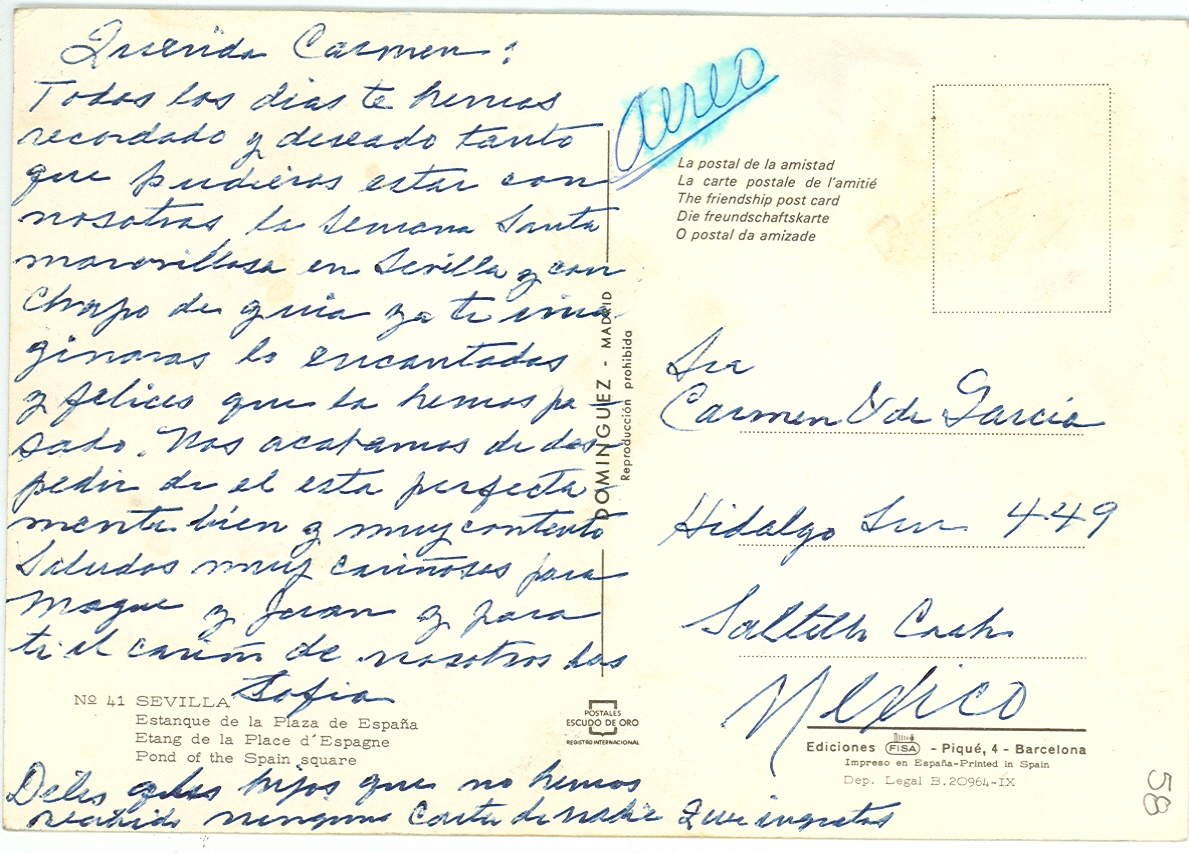 Querida Carmen:
Todos los dias te hemos
recordado y deseado tanto
que pudieras estar con
nosotras la Semana Santa
maravillosa en Sevilla y con
Chapo de guia ya te ima
ginaras lo encantadas
y felices que la hemos pa-
sado. Nos acabamos de des-
pedir de el esta perfecta
mente bien y muy contento
Saludos muy cariñosos para
Maque y Juan y para
ti el cariño de nosotros las
Sofia
Nº 41 SEVILLA
Estanque de la Plaza de España
Etang de la Place d'Espagne
Pond of the Spain square
Diles a los hijos que no hemos
recibido ninguna carta de nadie Que ingratos
DOMINGUEZ - MADRID
Reproducción prohibida
POSTALES
ESCUDO DE ORO
REGISTRO INTERNACIONAL
aereo
La postal de la amistad
La carte postale de l'amitié
The friendship post card
Die freundschaftskarte
O postal da amizade
Sra
Carmen V de Garcia
Hidalgo Sur 449
Saltillo Coah.
Mexico
Ediciones FISA - Piqué, 4 - Barcelona
Impreso en España-Printed in Spain
Dep. Legal B.20964-IX
58